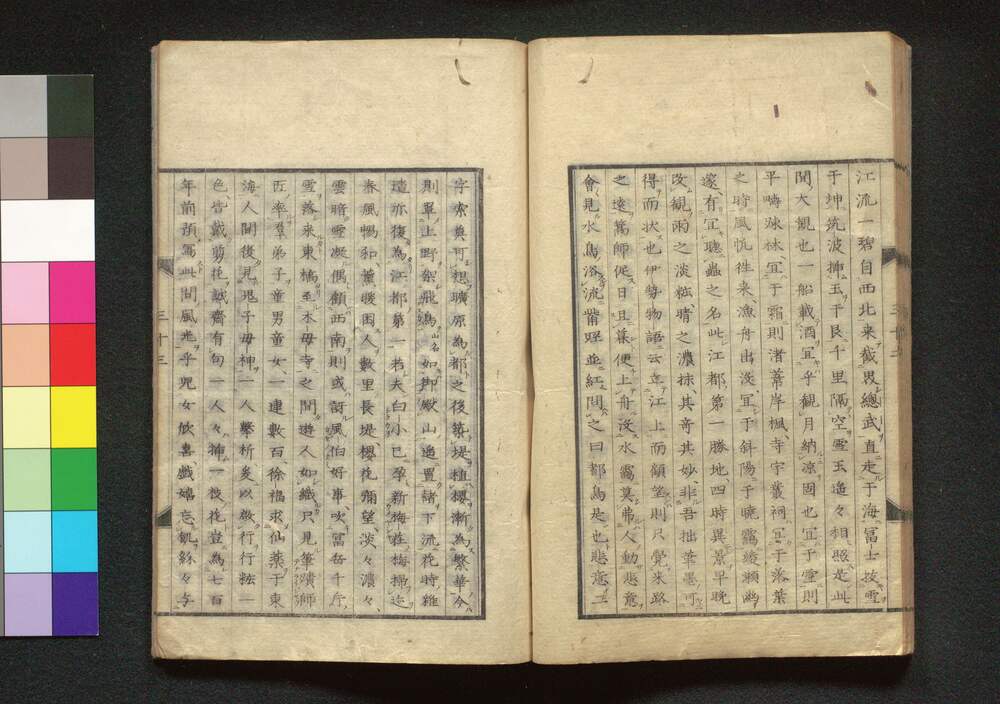 江流一碧自西北来截畀總武直走于海冨士披雪
于坤筑波挿玉于艮千里隔空雪玉遙々相照是此
間大観也一船載酒宜乎観月納凉固也宜于雪則
平疇疎林宜于霜則渚葦岸楓寺宇叢祠宜于落葉
之時風帆徃来漁舟出没宜于斜陽于暁靄綾瀬幽
邃有宜聴蟲之名此江都第一勝地四時異景早晩
改観雨之淡粧晴之濃抹其奇其妙非吾拙筆墨可
得而状也伊勢物語云立江上而顧望則只覚来路
之遠篙師促日且莫便上舟没水靄糢弗人動悲意
會見水鳥浴流觜脛並紅問之曰都鳥是也悲意二
字索莫可想曠原為都之後築堤植櫻漸為繁華今
則單上野飛鳥山名如御殿山遙置諸下流花時雜
遝亦復為江都第一若夫白小已孕新梅荘梅掃迄
春風暢和薫暖困人數里長堤櫻花彌望淡々濃々
雲暗雪凝偶顧西南則或訝風伯好事吹冨岳千斤
雪落来東橋至木母寺之間遊人如織只見筆蹟師
匠率羣弟子童男童女一連數百徐福求仙薬于東
海人間後見鬼子母神一人撃柝㕛以啟行行粧一
色皆戴剪花越齋有句一人々挿一枝花豈為七百
年前預寫此間風光乎児女欣喜戯嬉忘飢絲々与
三十三